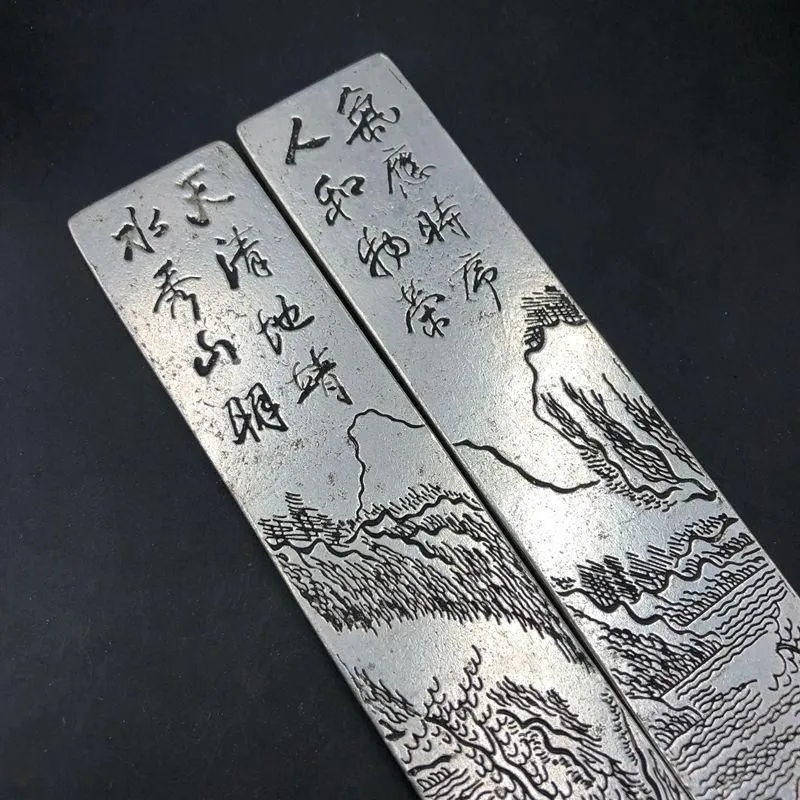 氣應時序
人和物榮
天清地靖
水秀山明